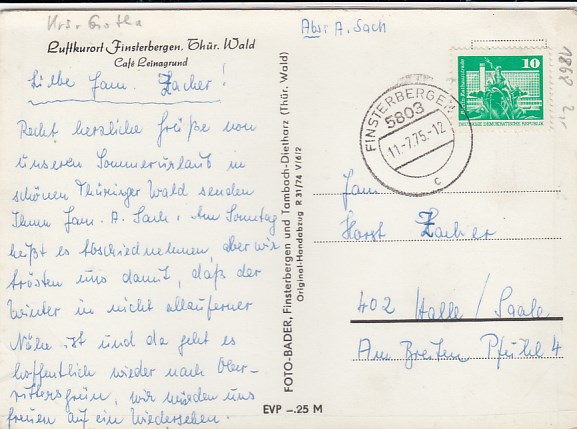 Krs. Gotha
Luftkurort Finsterbergen, Thür. Wald
Café Leinagrund
Liebe Fam. Zacher!
Recht herzliche Grüße von
unseren Sommerurlaub in
schönen Thüringer Wald senden
Ihnen Fam. A. Sach, Am Sonntag
heißt es abschiednehmen, aber wir
trösten uns damit, daß der
Winter in nicht allzuferner
Nähe ist und da geht es
hoffentlich wieder nach Ober-
rittersgrün, wir würden uns
freuen auf ein Wiedersehen.
EVP –.25 M
FOTO-BADER, Finsterbergen und Tambach-Dietharz (Thür. Wald)
Original-Handabzug R 31/74 V/6/2
Abs. A. Sach
FINSTERBERGEN
5803
11.-7.75.-12
c
10
DEUTSCHE DEMOKRATISCHE REPUBLIK
1868
Fam
Horst Zacher
402 Halle / Saale
Am Breiten Pfuhl 4